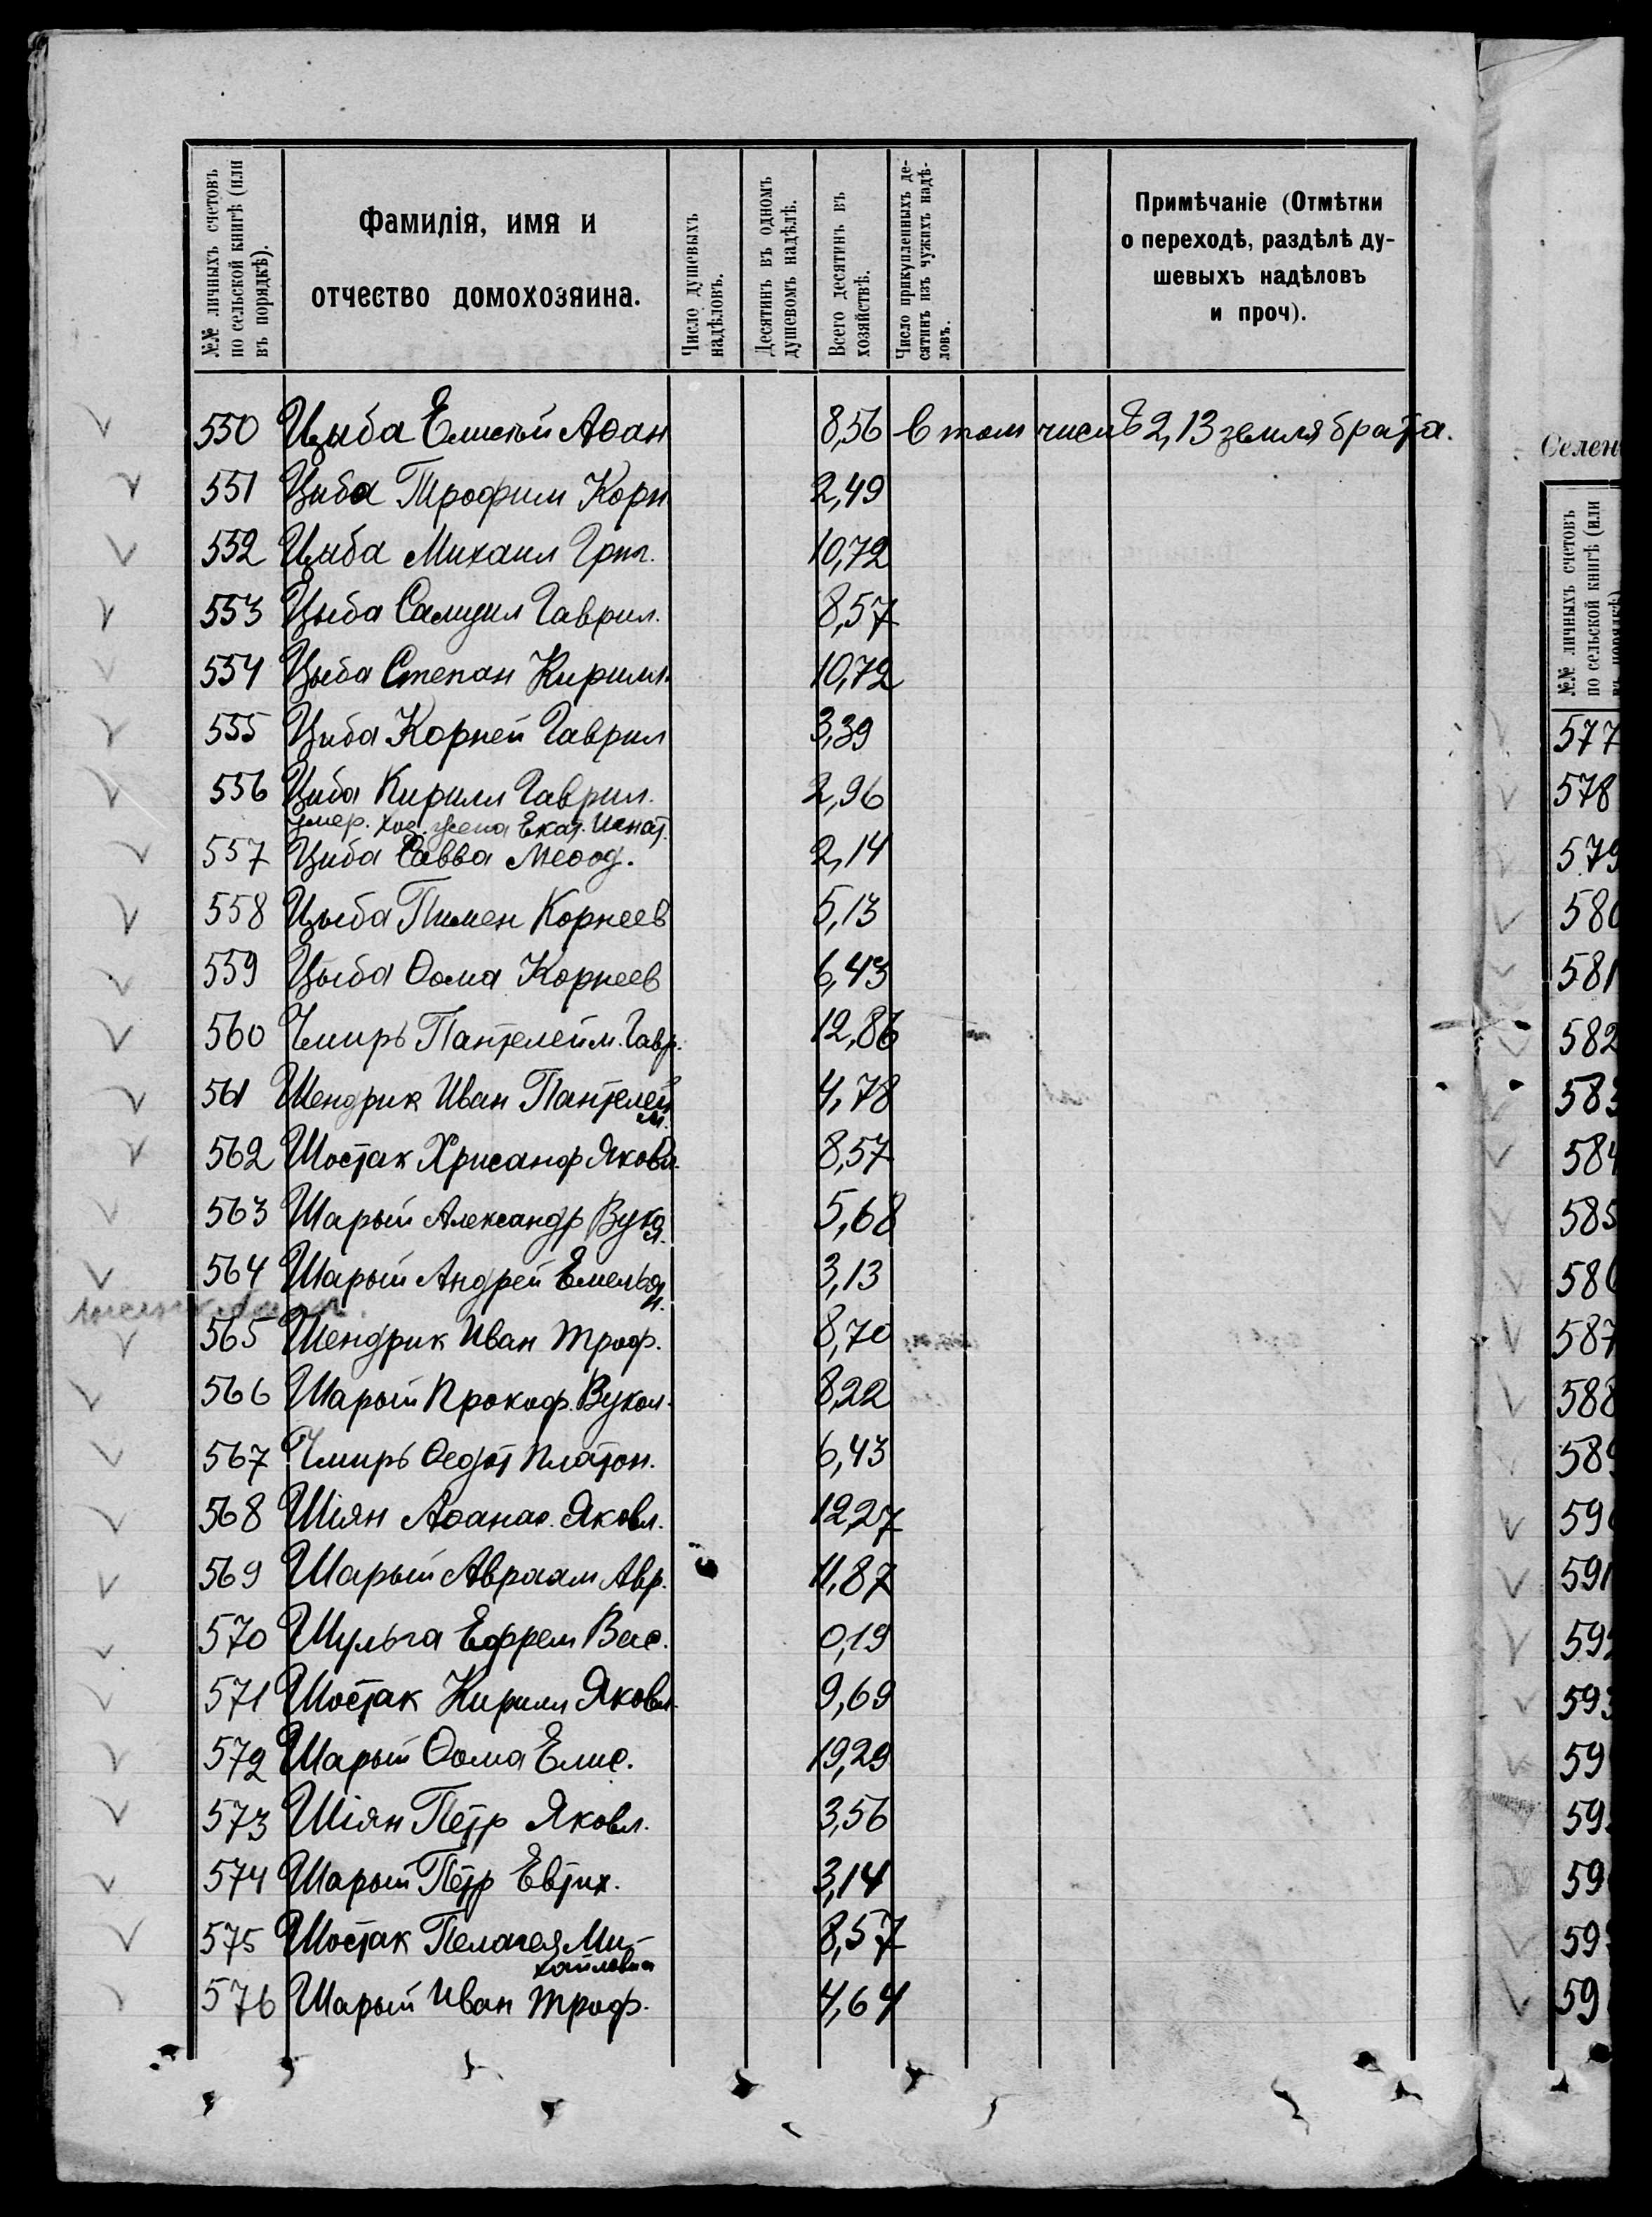 №№ личныхъ счетовъ
по сельской книгѣ (или
въ порядкѣ).
Фамилія, имя и
отчество домохозяина.
Число душевыхъ
надѣловъ.
Десятинъ въ одномъ
душевомъ надѣлѣ.
Всего десятинъ въ
хозяйствѣ.
Число прикупленныхъ де-
сятинъ изъ чужихъ надѣ-
ловъ.
Примѣчаніе (Отмѣтки
о переходѣ, раздѣлѣ ду-
шевыхъ надѣловъ
и проч).
550 Цыба Елисей Аѳан 8,56 в том числѣ 2,13 земля брата.
551 Цыба Трофим Корн 2,49
552 Цыба Михаил Григ. 10,72
553 Цыба Самуил Гаврил. 8,57
554 Цыба Степан Кирилл. 10,72
555 Цыба Корней Гаврил 3,39
556 Цыба Кирилл Гаврил. 2,96
умер. хоз. жена Екат. Игнат.
557 Цыба Савва Меѳод. 2,14
558 Цыба Пимен Корнеев 5,13
559 Цыба Ѳома Корнеев 6,43
560 Чмирь Пантелейм. Гавр. 12,86
561 Шендрик Иван Пантелей 4,78
м.
562 Шостак Хрисанф Яковл. 8,57
563 Шарый Александр Вуко 5,68
л.
564 Шарый Андрей Емелья 3,13
н.
565 Шендрик Иван Троф. 8,70
566 Шарый Прокоф. Вукол. 8,22
567 Чмирь Ѳедот Платон. 6,43
568 Шіян Аѳанас. Яковл. 12,27
569 Шарый Авраам Авр. 11,87
570 Шульга Ефрем Вас. 0,19
571 Шостак Кирилл Яковл. 9,69
572 Шарый Ѳома Елис. 19,29
573 Шіян Петр Яковл. 3,56
574 Шарый Петр Евтих. 3,14
575 Шостак Пелагея Ми- 8,57
хайловна
576 Шарый Иван Троф. 4,64
Селен
№№ личныхъ счетовъ
по сельской книгѣ (или
въ порядкѣ)
577
578
579
580
581
582
583
584
585
586
587
588
589
590
591
592
593
59
59
59
59
59